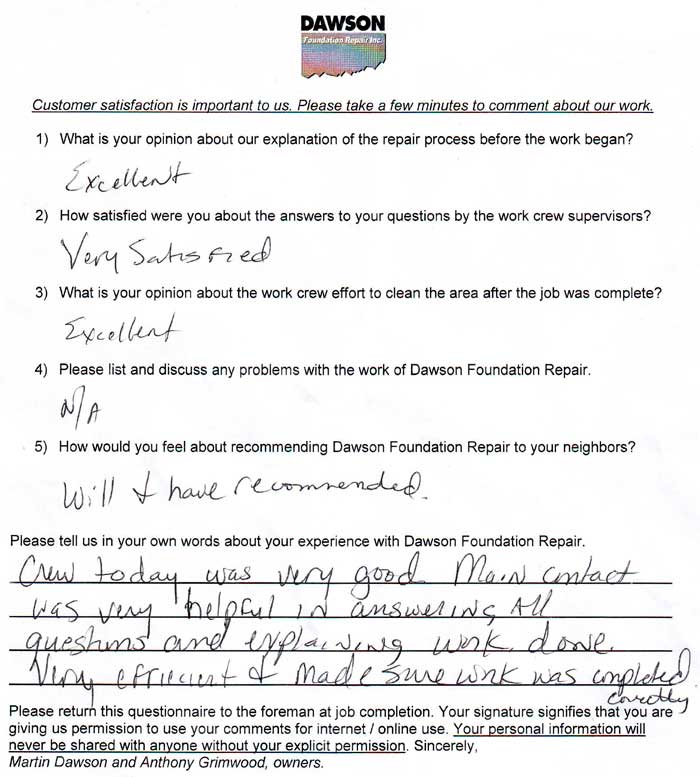 DAWSON
Foundation Repair Inc.
Customer satisfaction is important to us. Please take a few minutes to comment about our work.
1) What is your opinion about our explanation of the repair process before the work began?
Excellent
2) How satisfied were you about the answers to your questions by the work crew supervisors?
Very Satisfied
3) What is your opinion about the work crew effort to clean the area after the job was complete?
Excellent
4) Please list and discuss any problems with the work of Dawson Foundation Repair.
N/A
5) How would you feel about recommending Dawson Foundation Repair to your neighbors?
Will & have recommended.
Please tell us in your own words about your experience with Dawson Foundation Repair.
Crew today was very good. Main contact
was very helpful in answering All
questions and explaining work done.
Very efficient & made sure work was completed
correctly
Please return this questionnaire to the foreman at job completion. Your signature signifies that you are
giving us permission to use your comments for internet / online use. Your personal information will
never be shared with anyone without your explicit permission. Sincerely,
Martin Dawson and Anthony Grimwood, owners.